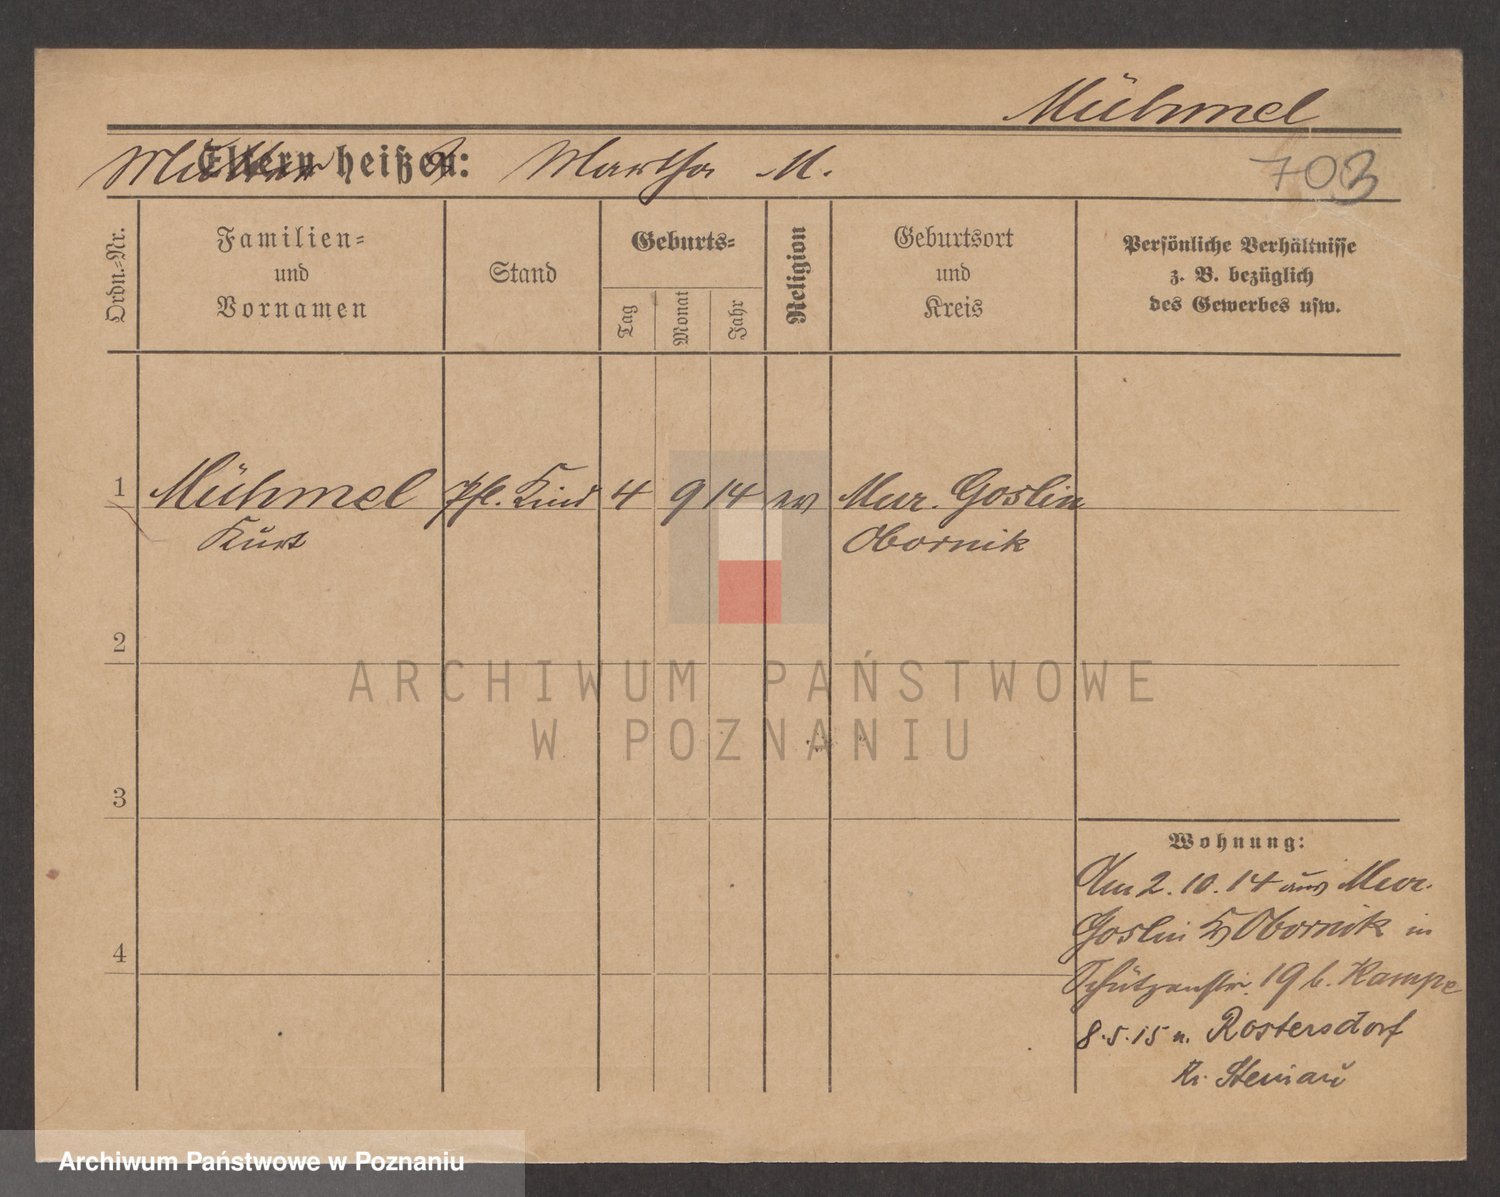 Mühmel
Mutter Eltern heißen: Martha M.
703
Ordn.-Nr.
Familien-
und
Vornamen
Stand
Geburts-
Tag
Monat
Jahr
Religion
Geburtsort
und
Kreis
Persönliche Verhältnisse
z. B. bezüglich
des Gewerbes usw.
1 Mühmel Pfl. Kind 4 9 14 ev Mur. Goslin
Kurt Obornik
2
ARCHIWUM PAŃSTWOWE
W POZNANIU
3
Wohnung:
Am 2.10.14 aus Mur.
Goslin Kr Obornik in
Schützenstr. 19 b. Kampe
8.5.15 n. Rostersdorf
Kr. Steinau
4
Archiwum Państwowe w Poznaniu